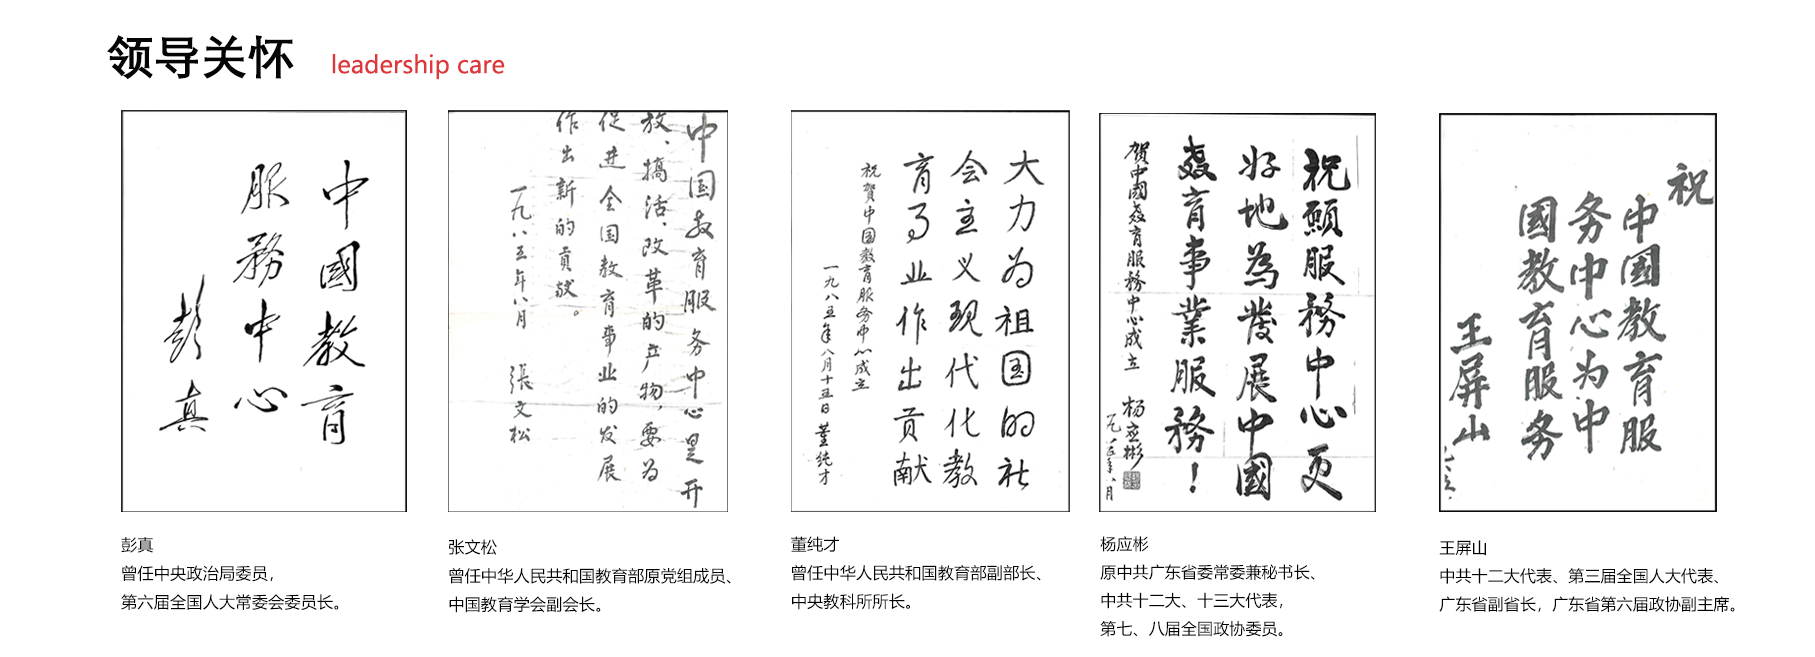 领导关怀
leadership care
中國教育
服務中心
彭真
中国教育服务中心是开
放、搞活、改革的产物,要为
促进全国教育事业的发展
作出新的贡献。
一九八五年八月 張文松
大力为祖国的社
会主义现代化教
育事业作出贡献
祝賀中国教育服务中心成立
一九八五年八月十五日 董纯才
祝願服務中心更
好地為發展中國
教育事業服務!
賀中國教育服務中心成立 杨应彬
一九八五年八月
祝
中国教育服
务中心为中
國教育服务
王屏山
彭真
曾任中央政治局委员，
第六届全国人大常委会委员长。
张文松
曾任中华人民共和国教育部原党组成员、
中国教育学会副会长。
董纯才
曾任中华人民共和国教育部副部长、
中央教科所所长。
杨应彬
原中共广东省委常委兼秘书长、
中共十二大、十三大代表，
第七、八届全国政协委员。
王屏山
中共十二大代表、第三届全国人大代表、
广东省副省长，广东省第六届政协副主席。